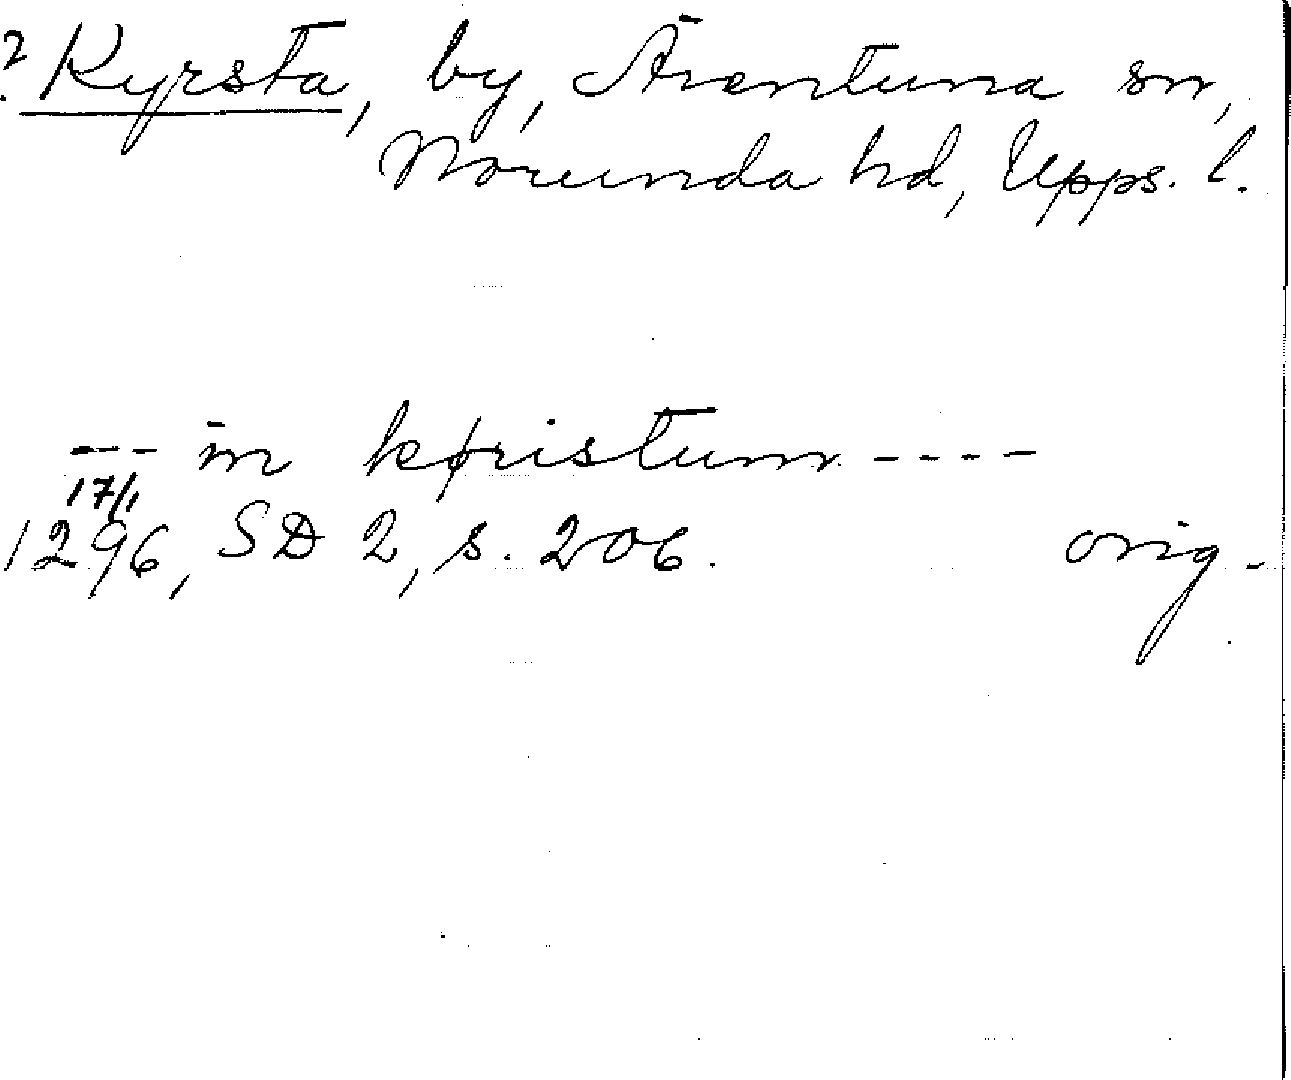 ? Kyrsta, by, Ärentuna sn,
Norunda hd, Upps. l.
--- in køristum ----
17/1
1296, SD 2, s. 206. orig.